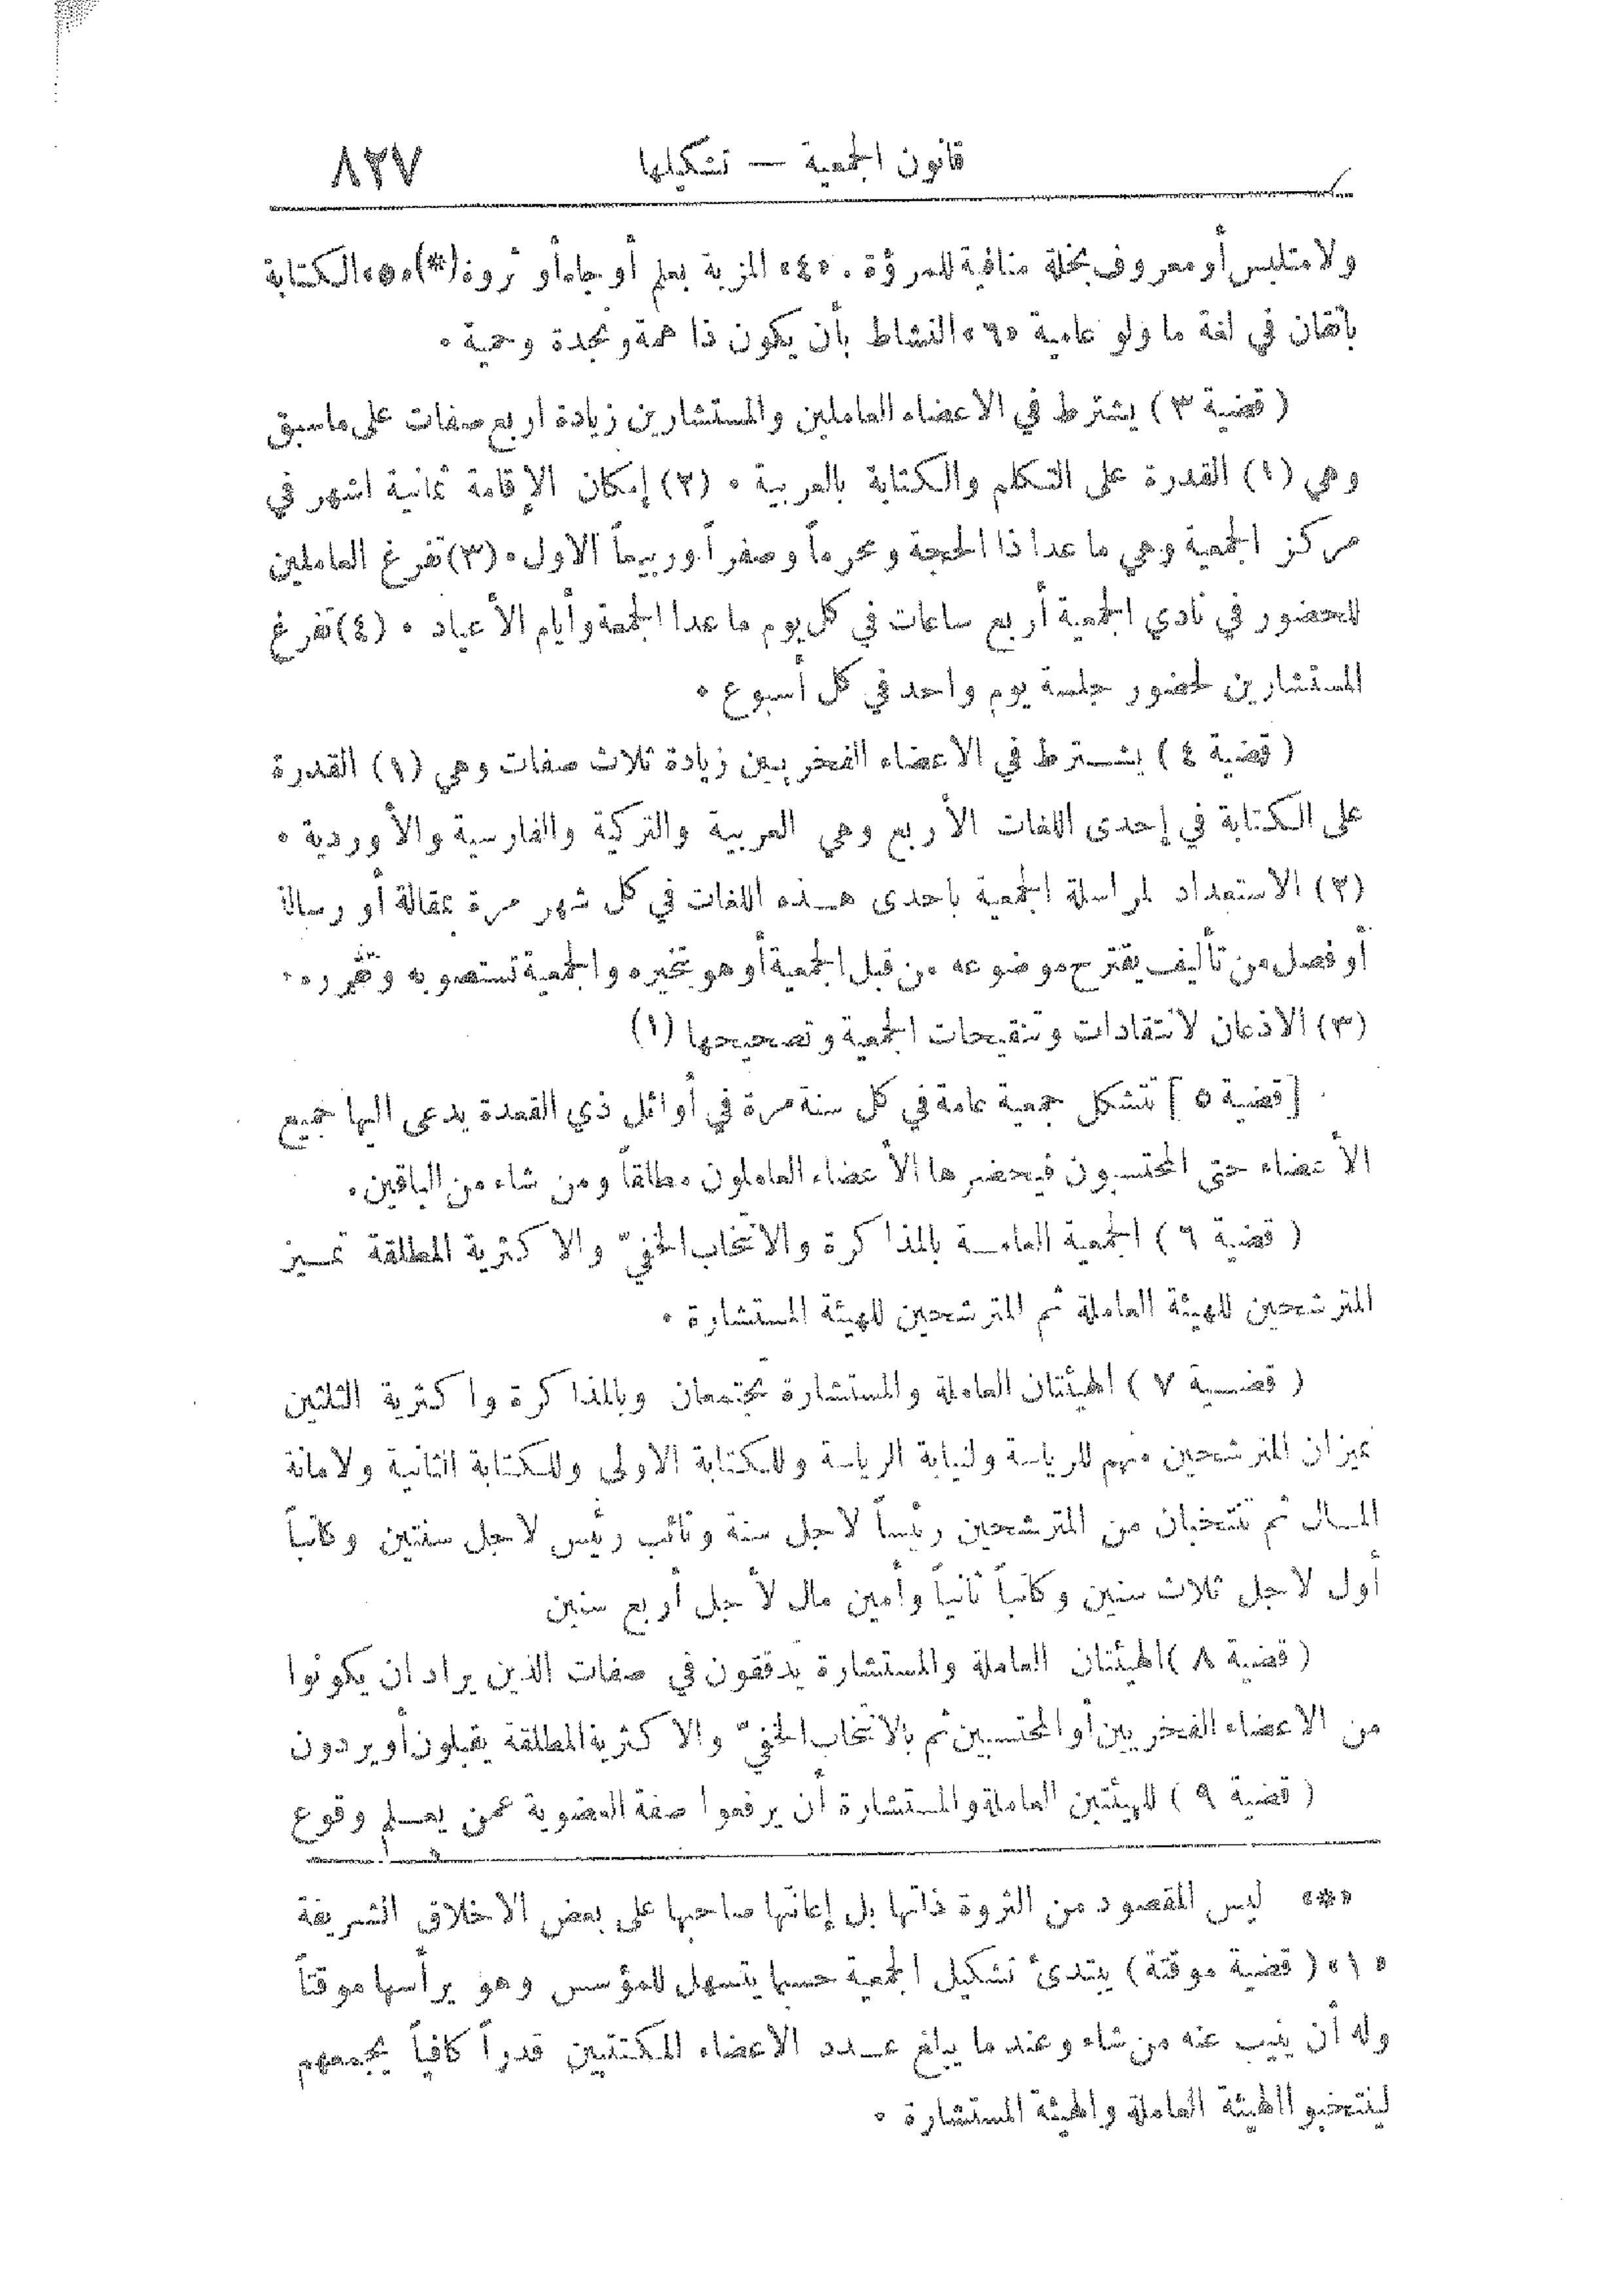 قانون الجمعية — تشكيلها ٨٢٧
ولا متلبس أو معروف بخلة منافية للمروٴة . «٤» المزية بعلم أو جاه أو ثروة (*) «٥» الكتابة
باتقان في لغة ما ولو عامية «٦» النشاط بأن يكون ذا همة ونجدة وحمية .
( قضية ٣ ) يشترط في الاعضاء العاملين والمستشارين زيادة اربع صفات على ماسبق
وهي (١) القدرة على التكلم والكتابة بالعربية . (٢) إمكان الإقامة ثمانية اشهر في
مركز الجمعية وهي ما عدا ذا الحجة ومحرماً وصفراً وربيعاً الاول . (٣) تفرغ العاملين
للحضور في نادي الجمعية أربع ساعات في كل يوم ما عدا الجمعة وأيام الأعياد . (٤) تفرغ
المستشارين لحضور جلسة يوم واحد في كل أسبوع .
( قضية ٤ ) يشترط في الاعضاء الفخريين زيادة ثلاث صفات وهي (١) القدرة
على الكتابة في إحدى اللغات الأربع وهي العربية والتركية والفارسية والأوردية .
(٢) الاستعداد لمراسلة الجمعية باحدى هذه اللغات في كل شهر مرة بمقالة أو رسالة
أو فصل من تأليف يقترح موضوعه من قبل الجمعية أو هو يتخيره والجمعية تستصوبه وتقرره .
(٣) الاذعان لانتقادات وتنقيحات الجمعية وتصحيحها (١)
[ قضية ٥ ] تتشكل جمعية عامة في كل سنة مرة في أوائل ذي القعدة يدعى اليها جميع
الأعضاء حتى المحتسبون فيحضرها الأعضاء العاملون مطلقاً ومن شاء من الباقين .
( قضية ٦ ) الجمعية العامة بالمذاكرة والانتخاب الخفيّ والاكثرية المطلقة تميز
المترشحين للهيئة العاملة ثم المترشحين للهيئة المستشارة .
( قضية ٧ ) الهيئتان العاملة والمستشارة تجتمعان وبالمذاكرة واكثرية الثلثين
تميزان المترشحين منهم للرياسة ولنيابة الرياسة وللكتابة الاولى وللكتابة الثانية ولامانة
المال ثم تنتخبان من المترشحين رئيساً لاجل سنة ونائب رئيس لاجل سنتين وكاتباً
أول لاجل ثلاث سنين وكاتباً ثانياً وأمين مال لأجل أربع سنين
( قضية ٨ ) الهيئتان العاملة والمستشارة يدققون في صفات الذين يراد ان يكونوا
من الاعضاء الفخريين أو المحتسبين ثم بالانتخاب الخفيّ والاكثرية المطلقة يقبلون أو يردون
( قضية ٩ ) للهيئتين العاملة والمستشارة أن يرفعوا صفة العضوية عمن يعلم وقوع
«*» ليس المقصود من الثروة ذاتها بل إعانتها صاحبها على بعض الاخلاق الشريفة
«١» ( قضية موقتة ) يبتدئ تشكيل الجمعية حسبما يتسهل للمؤسس وهو يرأسها موقتاً
وله أن ينيب عنه من شاء وعند ما يبلغ عدد الاعضاء المكتتبين قدراً كافياً يجمعهم
لينتخبوا الهيئة العاملة والهيئة المستشارة .